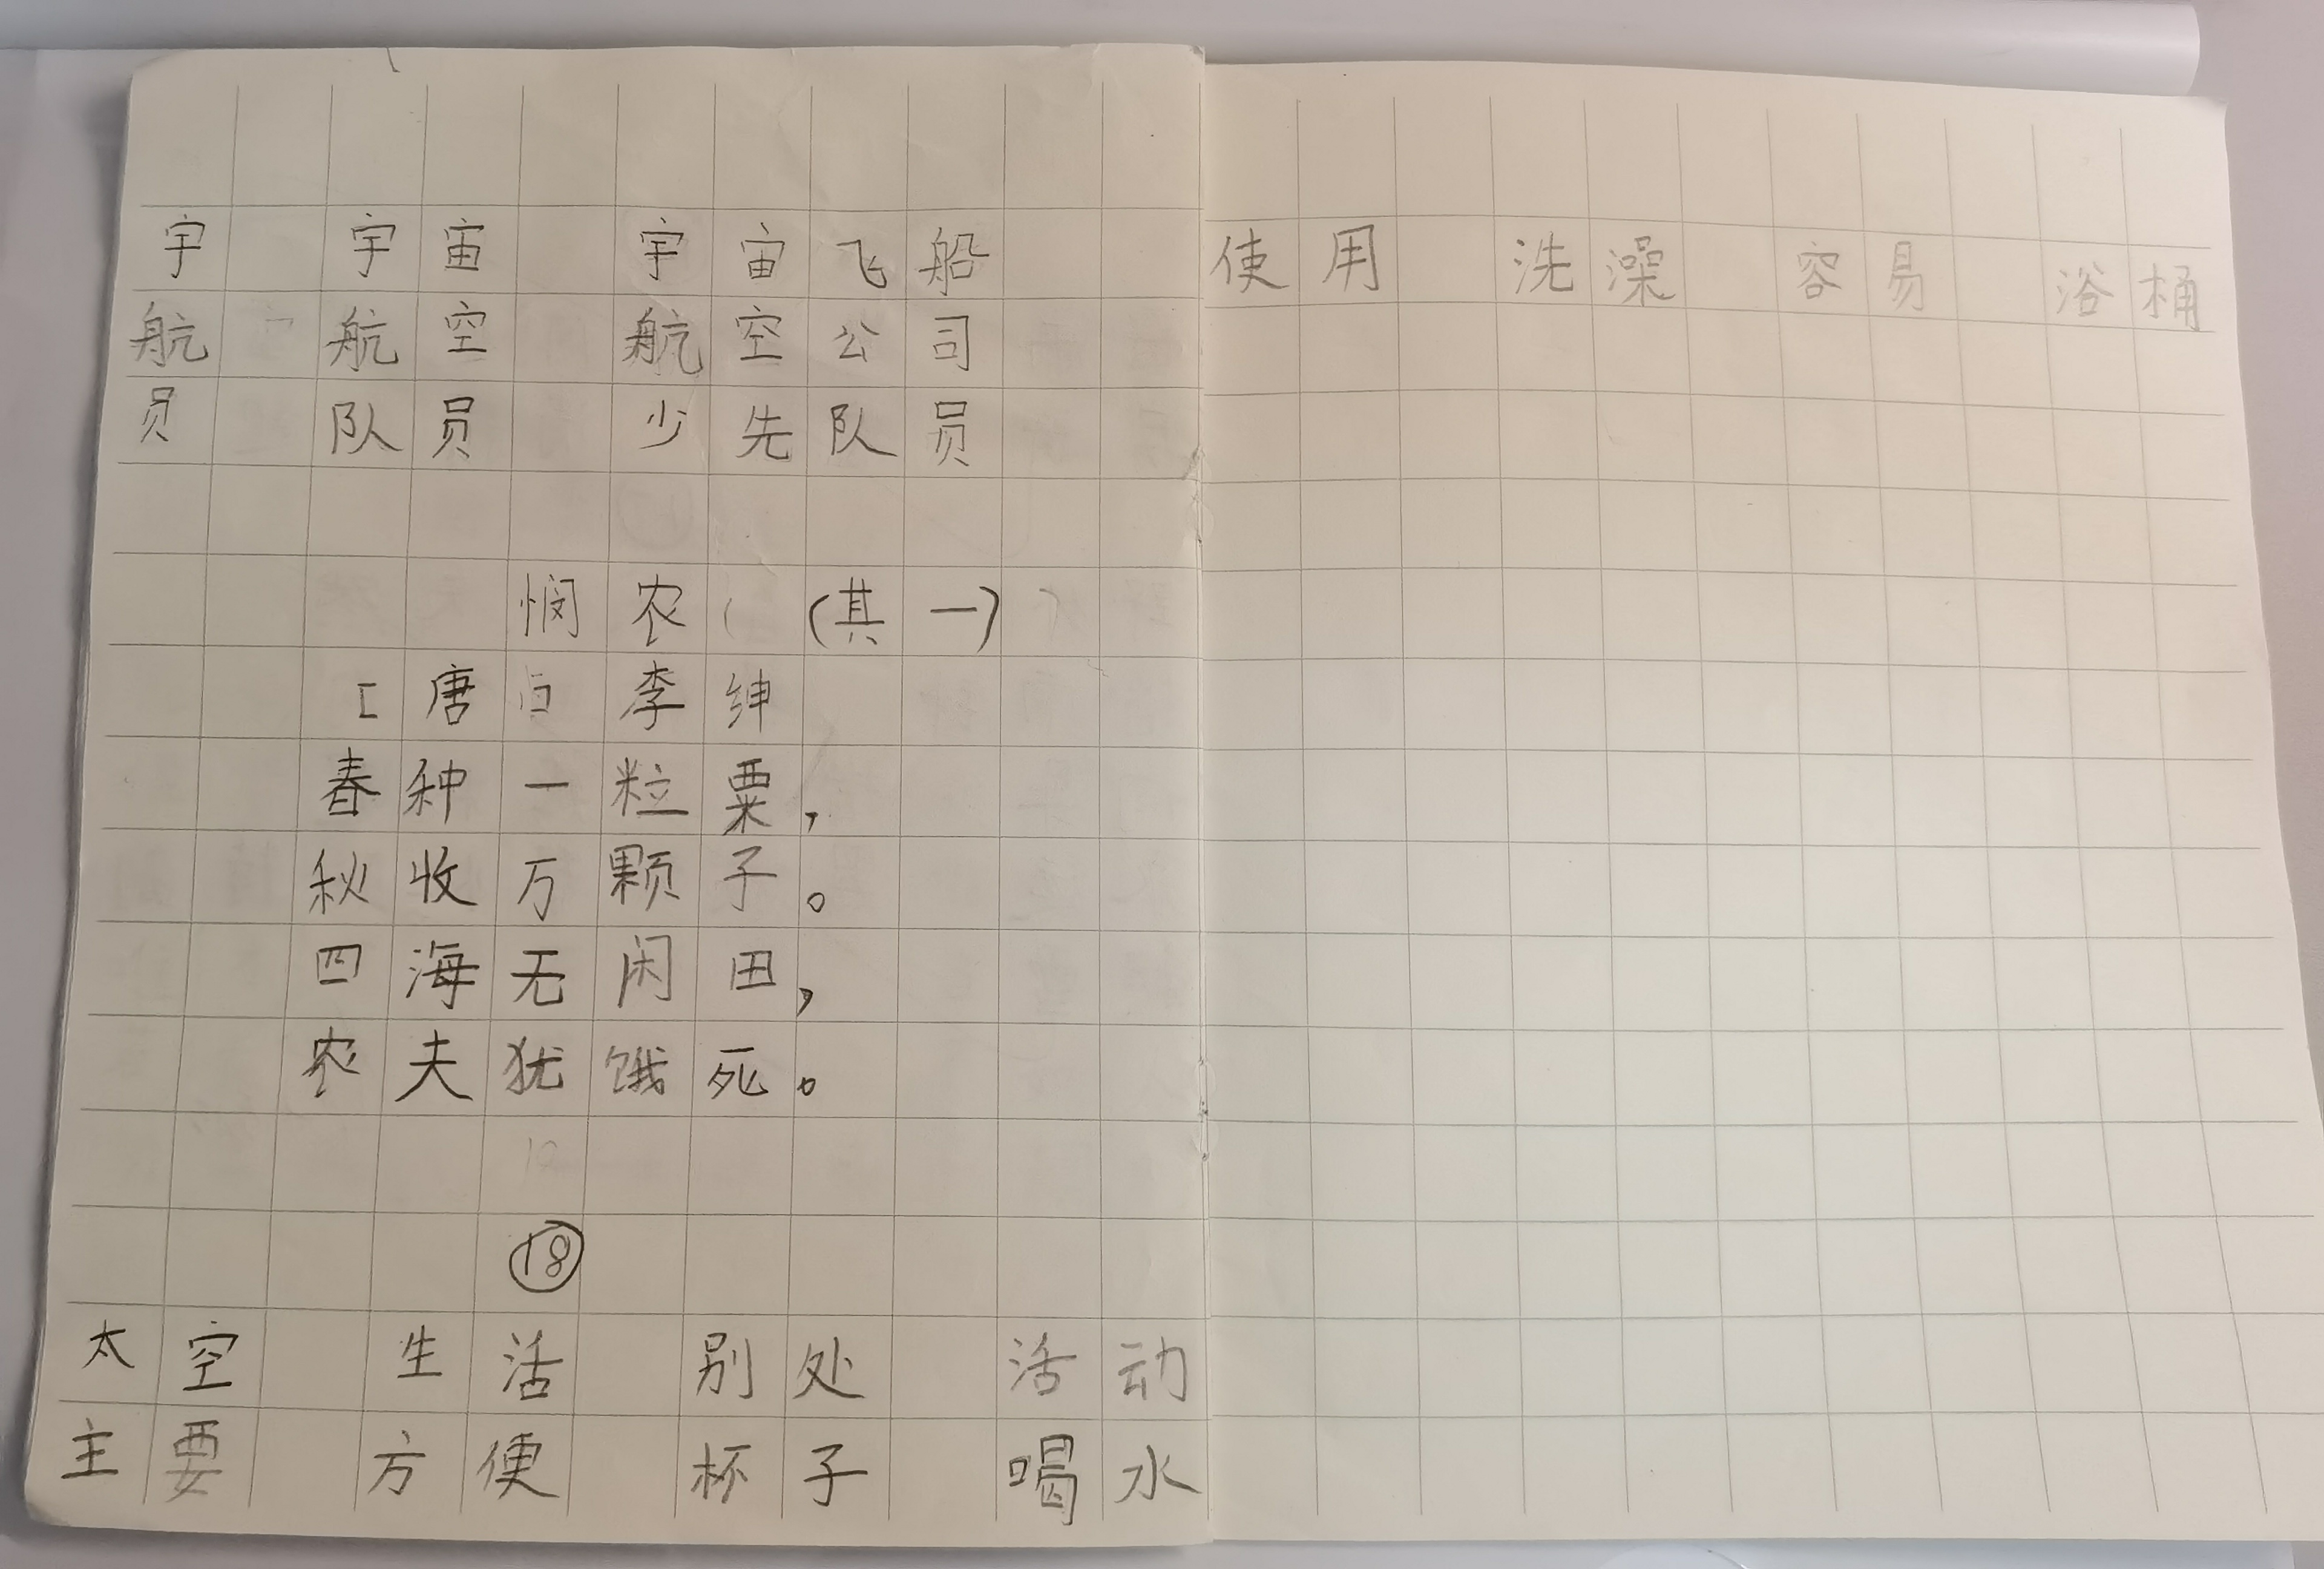 宇 宇宙 宇宙飞船
航 航空 航空公司
员 队员 少先队员
悯农 (其一)
[唐]李绅
春种一粒粟，
秋收万颗子。
四海无闲田，
农夫犹饿死。
⑱
太空 生活 别处 活动
主要 方便 杯子 喝水
使用 洗澡 容易 浴桶